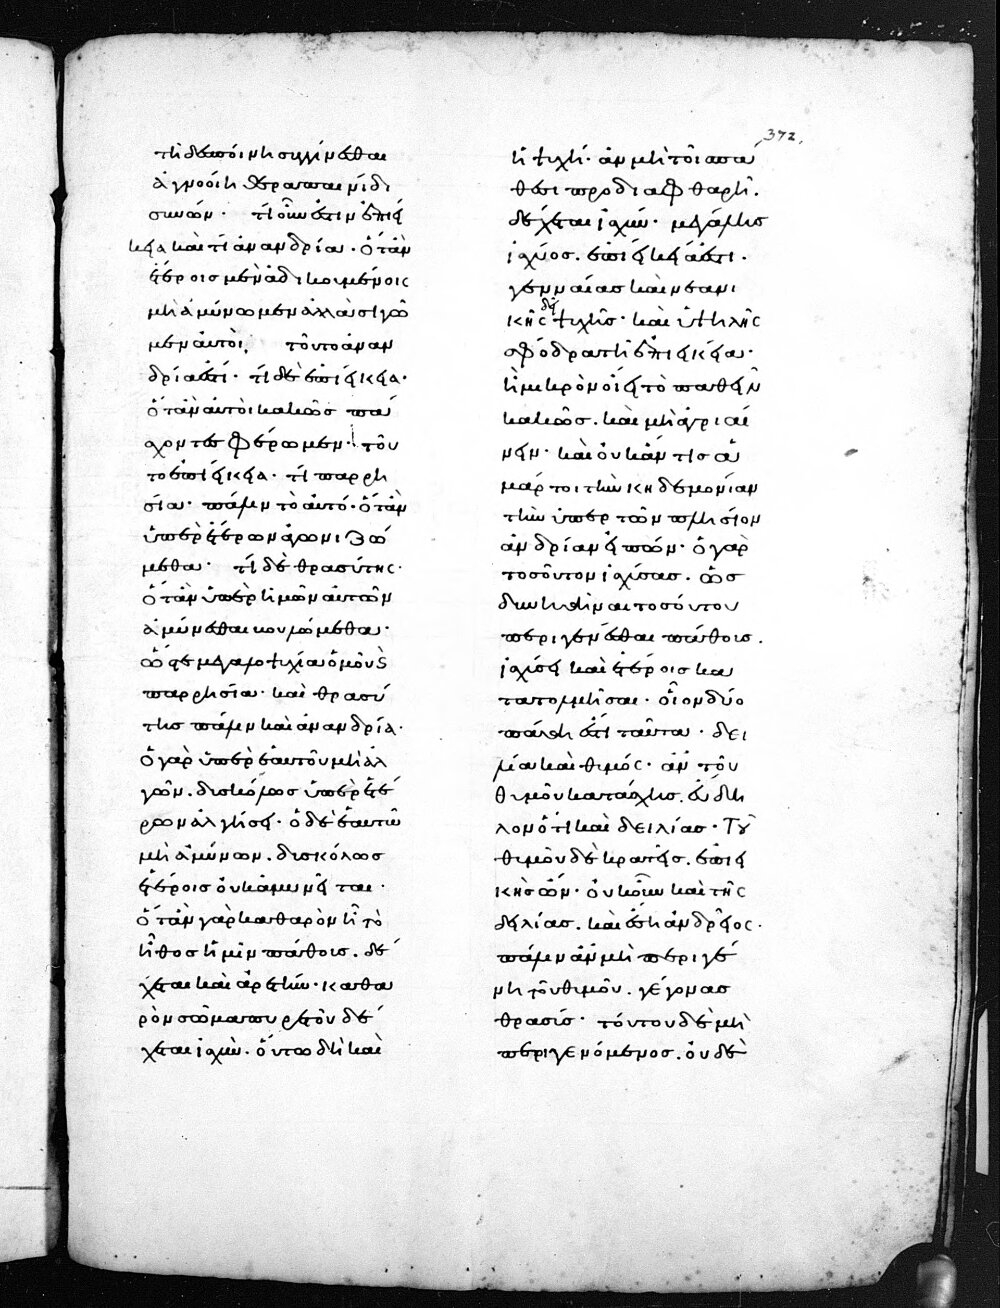 372
τῆ δεσποίνη συγγίνεσθαι
ἀγνοοίη θεραπαινίδι
συνών. τί οὖν ἐστιν ἐπιεί
κεια καὶ τί ἀνανδρία. ὅταν
ἑτέροις μὲν ἀδικουμένοις
μὴ ἀμύνωμεν ἀλλὰ σιγῶ
μεν αὐτοί, τοῦτο ἀναν
δρία ἐστί. τί δὲ ἐπιείκεια.
ὅταν αὐτοὶ κακῶς πάσ
χοντες φέρωμεν. τοῦ
το ἐπιείκεια. τί παρρη
σία. πάλιν τὸ αὐτό. ὅταν
ὑπὲρ ἑτέρων ἀγωνιζώ
μεθα. τί δὲ θρασύτης.
ὅταν ὑπὲρ ἡμῶν αὐτῶν
ἀμύνεσθαι βουλώμεθα.
ὥστε μεγαλοψυχία ὁμοῦ καὶ
παρρησία. καὶ θρασύ
της πάλιν καὶ ἀνανδρία.
ὁ γὰρ ὑπὲρ ἑαυτοῦ μὴ ἀλ
γῶν. δυσκόλως ὑπὲρ ἑτέ
ρων ἀλγήσει. ὁ δὲ ἑαυτῶ
μὴ ἀμύνων. δυσκόλως
ἑτέροις οὐκ ἀμυνεῖται.
ὅταν γὰρ καθαρὸν ἦ τὸ
ἦθος ἡμῖν πάθους. δέ
χεται καὶ ἀρετήν. καθα
ρὸν σῶμα πυρετοῦ δέ
χεται ἰσχύν. οὕτω δὴ καὶ
ἡ ψυχή. ἂν μὴ τοῖς πά
θεσι προδιαφθαρῆ.
δέχεται ἰσχύν. μεγάλης
ἰσχύος ἐπιείκεια ἐστι.
γενναίας καὶ νεανι
κῆς δεῖ ψυχῆς. καὶ ὑψηλῆς
σφόδρα τῆ ἐπιεικεία.
ἢ μικρὸν οἴει τὸ παθεῖν
κακῶς. καὶ μὴ ἀγριαί
νειν. καὶ οὐκ ἄν τις ἁ
μάρτοι τὴν κηδεμονίαν
τὴν ὑπὲρ τῶν πλησίον
ἀνδρίαν εἰπών. ὁ γὰρ
τοσοῦτον ἰσχύσας. ὡς
δυνηθῆναι τοσούτου
περιγενέσθαι πάθους.
ἰσχύσει καὶ ἑτέροις κα
τατολμῆσαι. οἷον δύο
πάθη ἐστὶ ταῦτα. δει
λία καὶ θυμός. ἂν τοῦ
θυμοῦ κατάσχης. εὔδη
λον ὅτι καὶ δειλίας. τοῦ
θυμοῦ δὲ κρατεῖς. ἐπιει
κὴς ὤν. οὐκοῦν καὶ τῆς
δειλίας. καὶ ἔση ἀνδρεῖος.
πάλιν ἂν μὴ περιγέ
νη τοῦ θυμοῦ. γέγονας
θρασύς. τούτου δὲ μὴ
περιγενόμενος. οὐδὲ